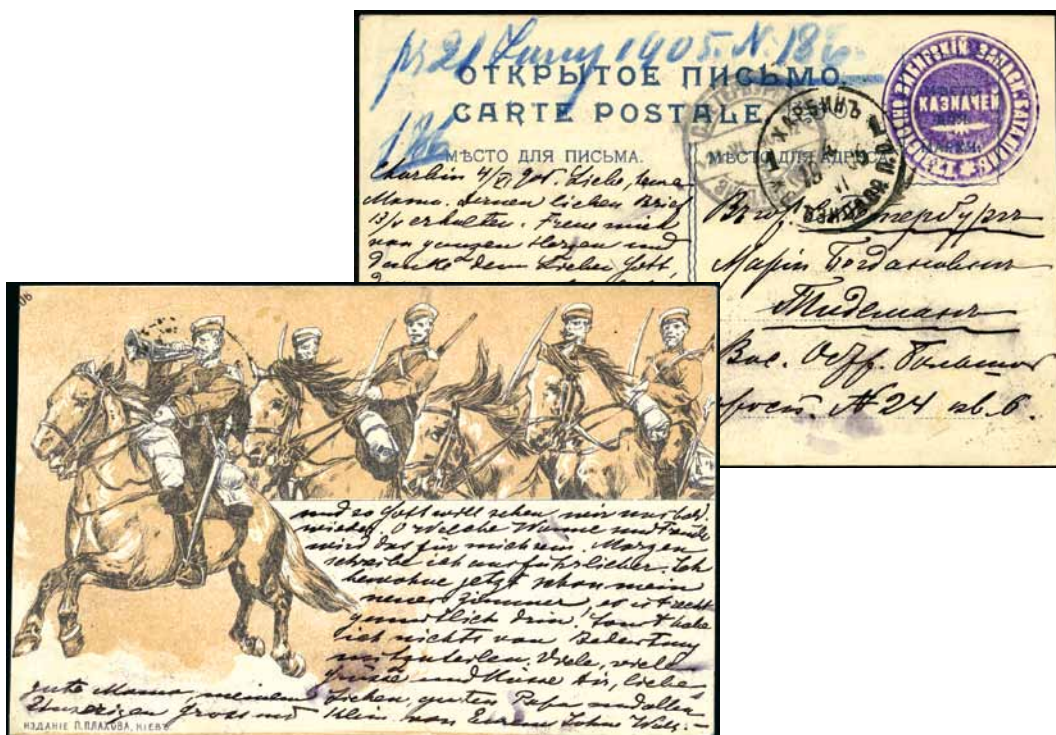 pr 21 1905. N. 186
186
ОТКРЫТОЕ ПИСЬМО.
CARTE POSTALE.
МѢСТО ДЛЯ ПИСЬМА.
МѢСТО ДЛЯ АДРЕСА
КАЗНАЧЕЙ
ХАРБИНЪ
Charbin 4/VI 905. Liebe, teure
Mama. Deinen lieben Brief
13/V erhalten. Freue mich
von ganzem Herzen und
danke dem Lieben Gott,
Въ гор. С. Петербургъ
Маріи Богдановнѣ
Тидеманъ
Вас. Остр. Большой
просп. № 24 кв. 6.
06
und so Gott will sehen wir uns bald
wieder. O welche Wonne und Freude
wird das für mich sein. Morgen
schreibe ich ausführlicher. Ich
bewohne jetzt schon mein
neues Zimmer, es ist recht
gemütlich drin. Sonst habe
ich nichts von Bedeutung
mitzuteilen. Viele, viele
Grüsse und Küsse Dir, liebe
gute Mama, meinem Lieben, guten Papa und allen
Unserigen gross und klein von Eurem Sohne
ИЗДАНІЕ П. ПЛАХОВА, КІЕВЪ